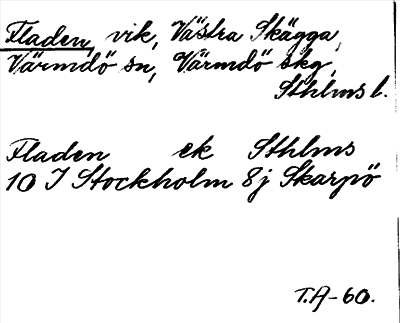 Fladen, vik, Västra Skägga,
Värmdö sn, Värmdö skg,
Sthlms l.
Fladen ek Sthlms
10 I Stockholm 8j Skarpö
T.A-60.